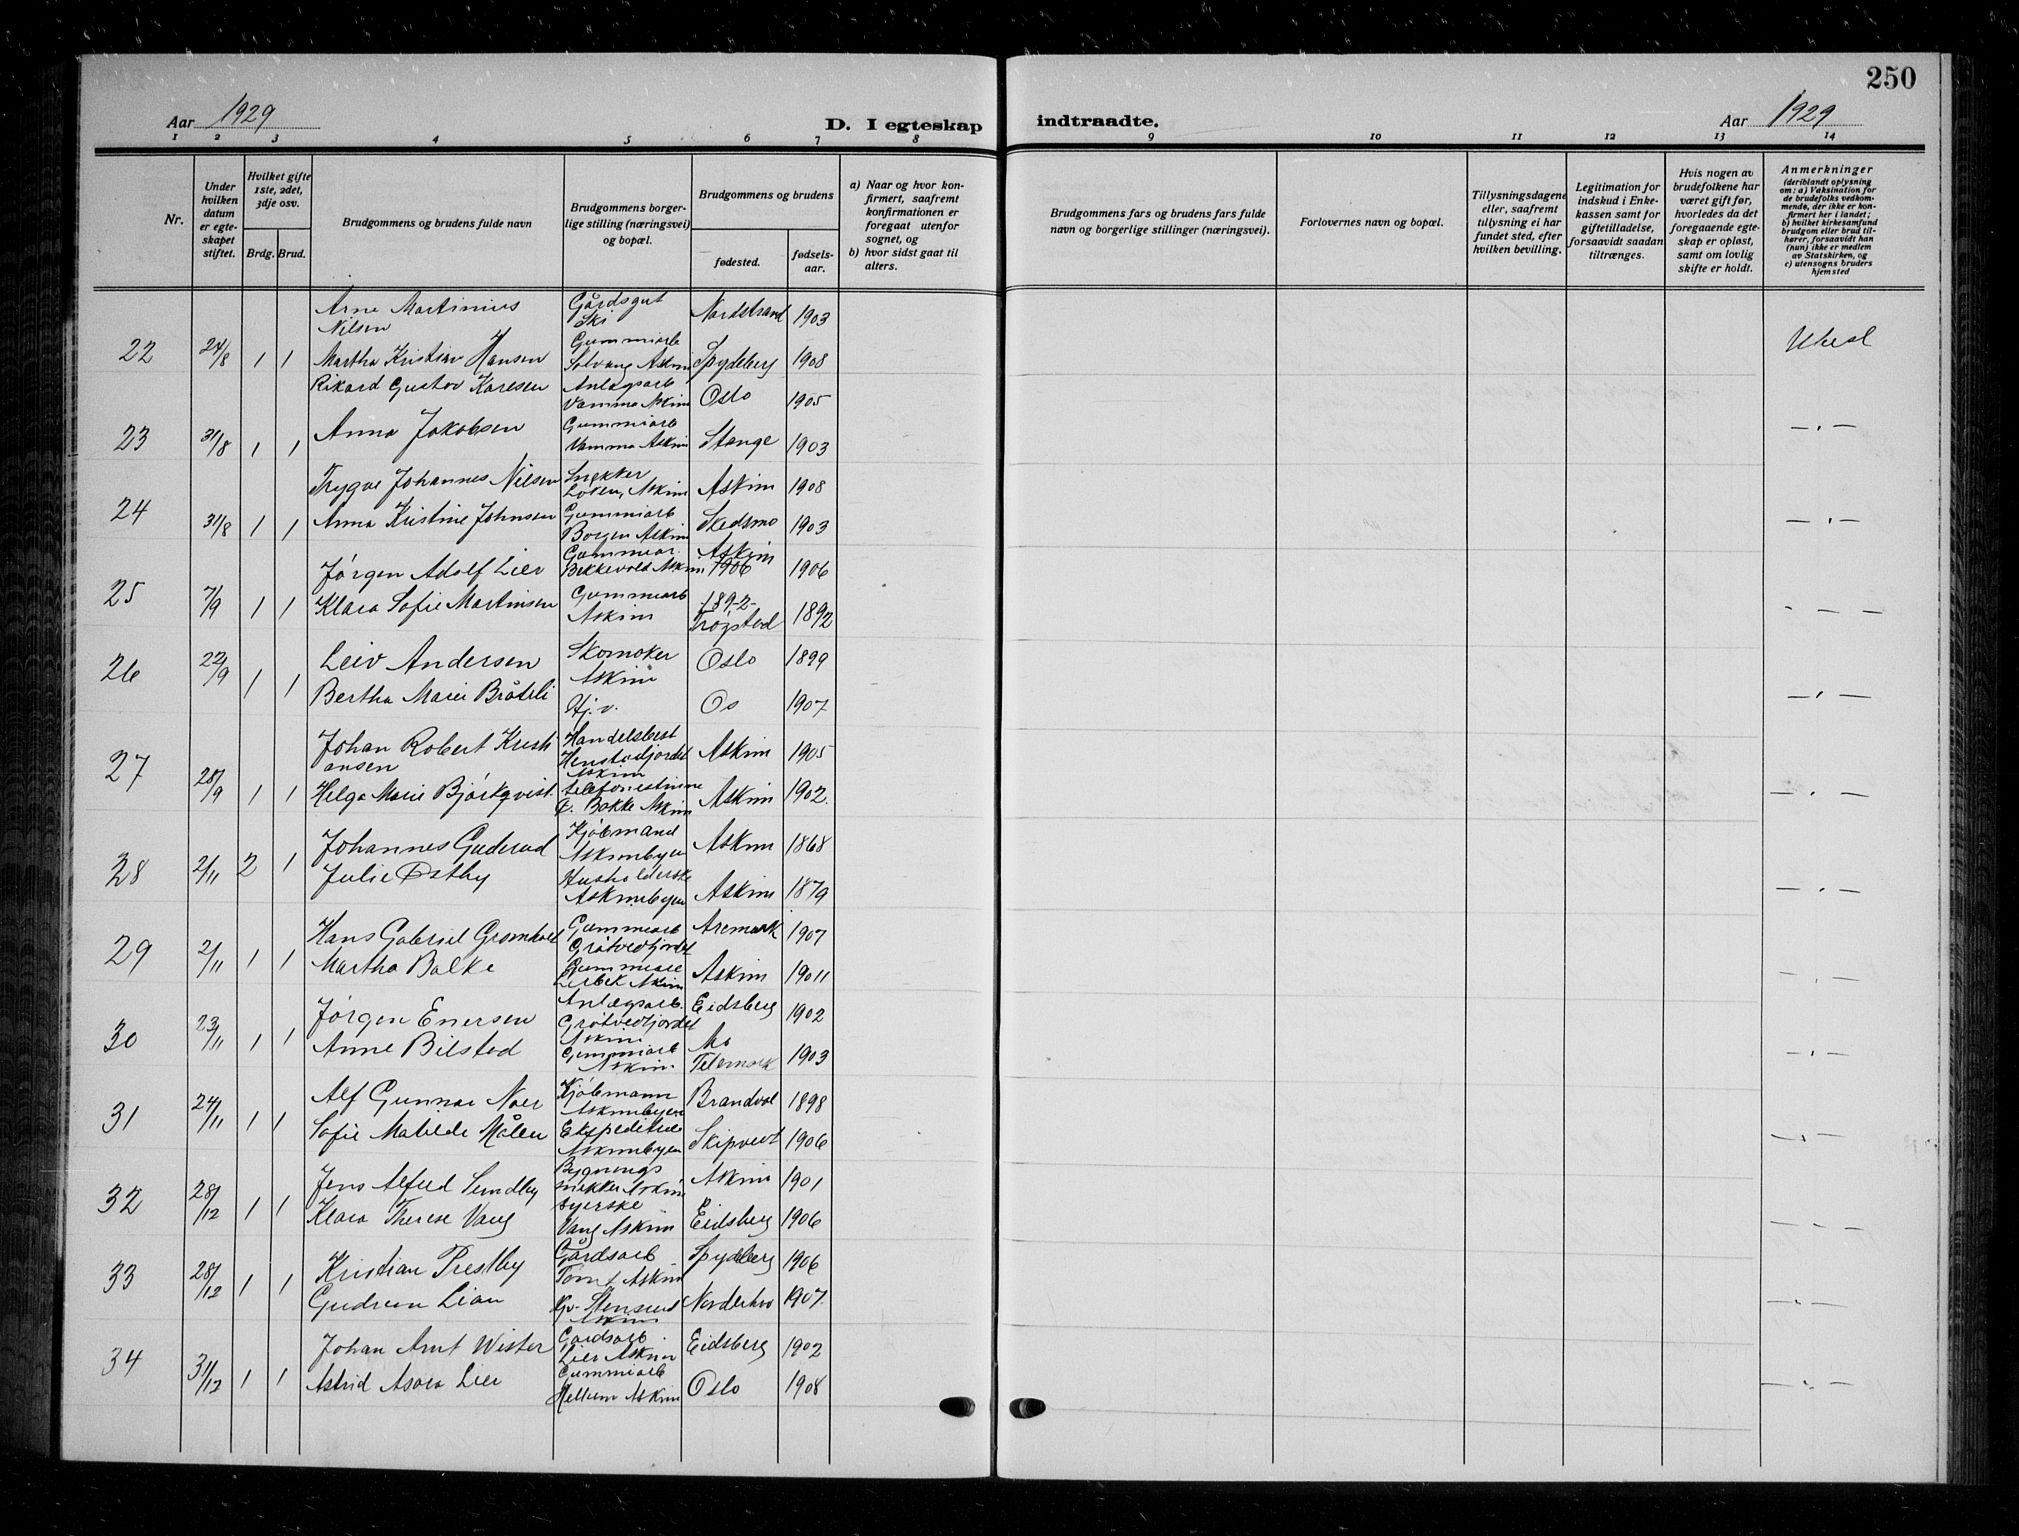 250
Aar 1929
D. I egteskap indtraadte.
Aar 1929
1 2 3 4 5 6 7 8 9 10 11 12 13 14
Nr.
Under hvilken datum er egteskapet stiftet.
Hvilket gifte 1ste, 2det, 3dje osv.
Brdg. Brud.
Brudgommens og brudens fulde navn
Brudgommens borgerlige stilling (næringsvei) og bopæl.
Brudgommens og brudens
fødested.
fødselsaar.
a) Naar og hvor konfirmert, saafremt konfirmationen er foregaat utenfor sognet, og
b) hvor sidst gaat til alters.
Brudgommens fars og brudens fars fulde navn og borgerlige stillinger (næringsvei).
Forlovernes navn og bopæl.
Tillysningsdagene eller, saafremt tillysning ei har fundet sted, efter hvilken bevilling.
Legitimation for indskud i Enkekassen samt for giftetilladelse, forsaavidt saadan tiltrænges.
Hvis nogen av brudefolkene har været gift før, hvorledes da det foregaaende egteskap er opløst, samt om lovlig skifte er holdt.
Anmerkninger
(deriblandt oplysning om: a) Vaksination for de brudefolks vedkommende, der ikke er konfirmert her i landet; b) hvilket kirkesamfund brudgom eller brud tilhører, forsaavidt han (hun) ikke er medlem av Statskirken, og c) utensogns bruders hjemsted
Arne Martinius Nilsen Gårdsgut Ski Nordstrand 1903
22 24/8 1 1 Martha Kristine Hansen Gummiarb Solvang Askim Spydeberg 1908
Rikard Gustav Karlsen Anlægsarb Vamma Askim Oslo 1905
23 31/8 1 1 Anna Jakobsen Gummiarb Vamma Askim Stange 1903 — " —
Trygve Johannes Nilsen Snekker Løken, Askim Askim 1908
24 31/8 1 1 Anna Kristine Johnsen Gummiarb Borgen Askim Skedsmo 1903 — " —
Jørgen Adolf Lier Gummiar. Bekkevold Askim Askim 1906 1906
25 7/9 1 1 Klara Sofie Martinsen Gummiarb Askim 1892 Trøgstad 1892 - — " —
26 22/9 1 1 Leiv Andersen Skomaker Askim Oslo 1899
Bertha Marie Bråteli Hj. v. Os 1907 — " —
Johan Robert Kristiansen Handelsbest Henstadfjordet Askim Askim 1905
27 28/9 1 1 Helga Marie Bjørkqvist. telefonistinne Ø. Bakke Askim Askim 1902. — " —
Johannes Guderud Kjøbmand Askimbyen Askim 1868
28 2/11 2 1 Julie Østby Husholderske Askimbyen Askim 1879 — " —
Hans Gabriel Gromholt Gummiarb Grøtvedtjordet Aremark 1907
29 2/11 1 1 Martha Bakke Gummiare Lerbek Askim Askim 19011 — " —
Jørgen Enersen Anlægsarb. Grøtvedtjordet Askim Eidsberg 1902
30 23/11 1 1 Anne Bilstad Gummiarb Askim. Mo Telemark 1903 — " —
Alf Gunnar Noer Kjøbmann Askimbyen Brandval 1898
31 24/11 1 1 Sofie Matilde Målen Ekspeditrice Askimbyen Skiptvedt 1906 — " —
Jens Alfred Sundby Bygnings snekker Askim Askim 1901
32 28/12 1 1 Klara Therese Vang Syerske Vang Askim Eidsberg 1906 — " —
Kristian Prestby Gårdsarb Tømt Askim Spydeberg 1906
33 28/12 1 1 Gudrun Lian Stensrud Askim Norderhov 1907. — " —
Johan Arnt Wister Gårdsarb. Lier Askim Eidsberg 1902
34 31/12 1 1 Astrid Asora Lier Gummiarb Hellum Askim Oslo 1908 — " —